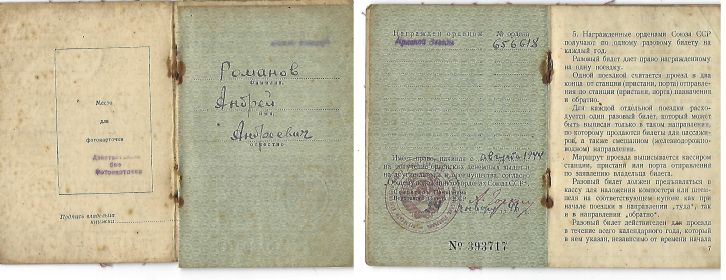 Место
для
фотокарточки
Действительно
без
Фотокарточки
Подпись владельца
книжки
Романов
Фамилия
Андрей
имя
Андреевич
отчество
Награжден орденом № ордена
Красной Звезды 656618
Имеет право, начиная с августа 1944
на получение орденских денежных выплат и
на другие льготы и преимущества согласно
Общему положению об орденах Союза ССР.
№ 393717
5. Награжденные орденами Союза ССР
получают по одному разовому билету на
каждый год.
Разовый билет дает право награжденному
на одну поездку.
Одной поездкой считается проезд в два
конца от станции (пристани, порта) отправле-
ния до станции (пристани, порта) назначения
и обратно.
Для каждой отдельной поездки расхо-
дуется один разовый билет, который может
быть выписан только в таком направлении,
по которому продаются билеты для пассажи-
ров, а также смешанном (железнодорожно-
водном) направлении.
Маршрут проезда выписывается кассиром
станции, пристани или порта отправления
по заявлению владельца билета.
Разовый билет должен предъявляться в
кассу для наложения компостера или штем-
пеля на соответствующем купоне как при
начале поездки в направлении „туда", так
и в направлении „обратно".
Разовый билет действителен для проезда
в течение всего календарного года, который
в нем указан, независимо от времени начала
7